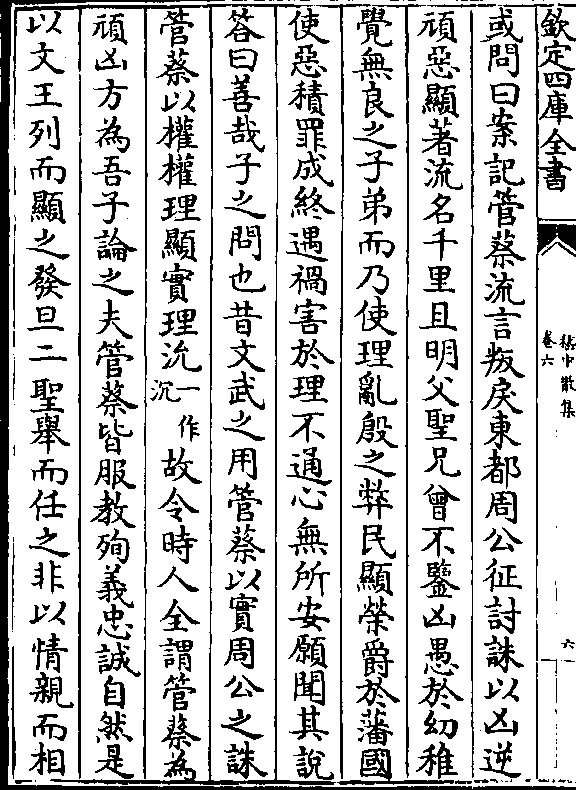 欽定四庫全書
嵇中散集
卷六
六
或問曰案記管蔡流言叛戾東都周公征討誅以凶逆
頑惡顯著流名千里且明父聖兄曾不鑒凶愚於幼稚
覺無良之子弟而乃使理亂殷之弊民顯榮爵於藩國
使惡積罪成終遇禍害於理不通心無所安願聞其說
答曰善哉子之問也昔文武之用管蔡以實周公之誅
管蔡以權權理顯實理沇一作沉故令時人全謂管蔡為
頑凶方為吾子論之夫管蔡皆服教殉義忠誠自然是
以文王列而顯之發旦二聖舉而任之非以情親而相